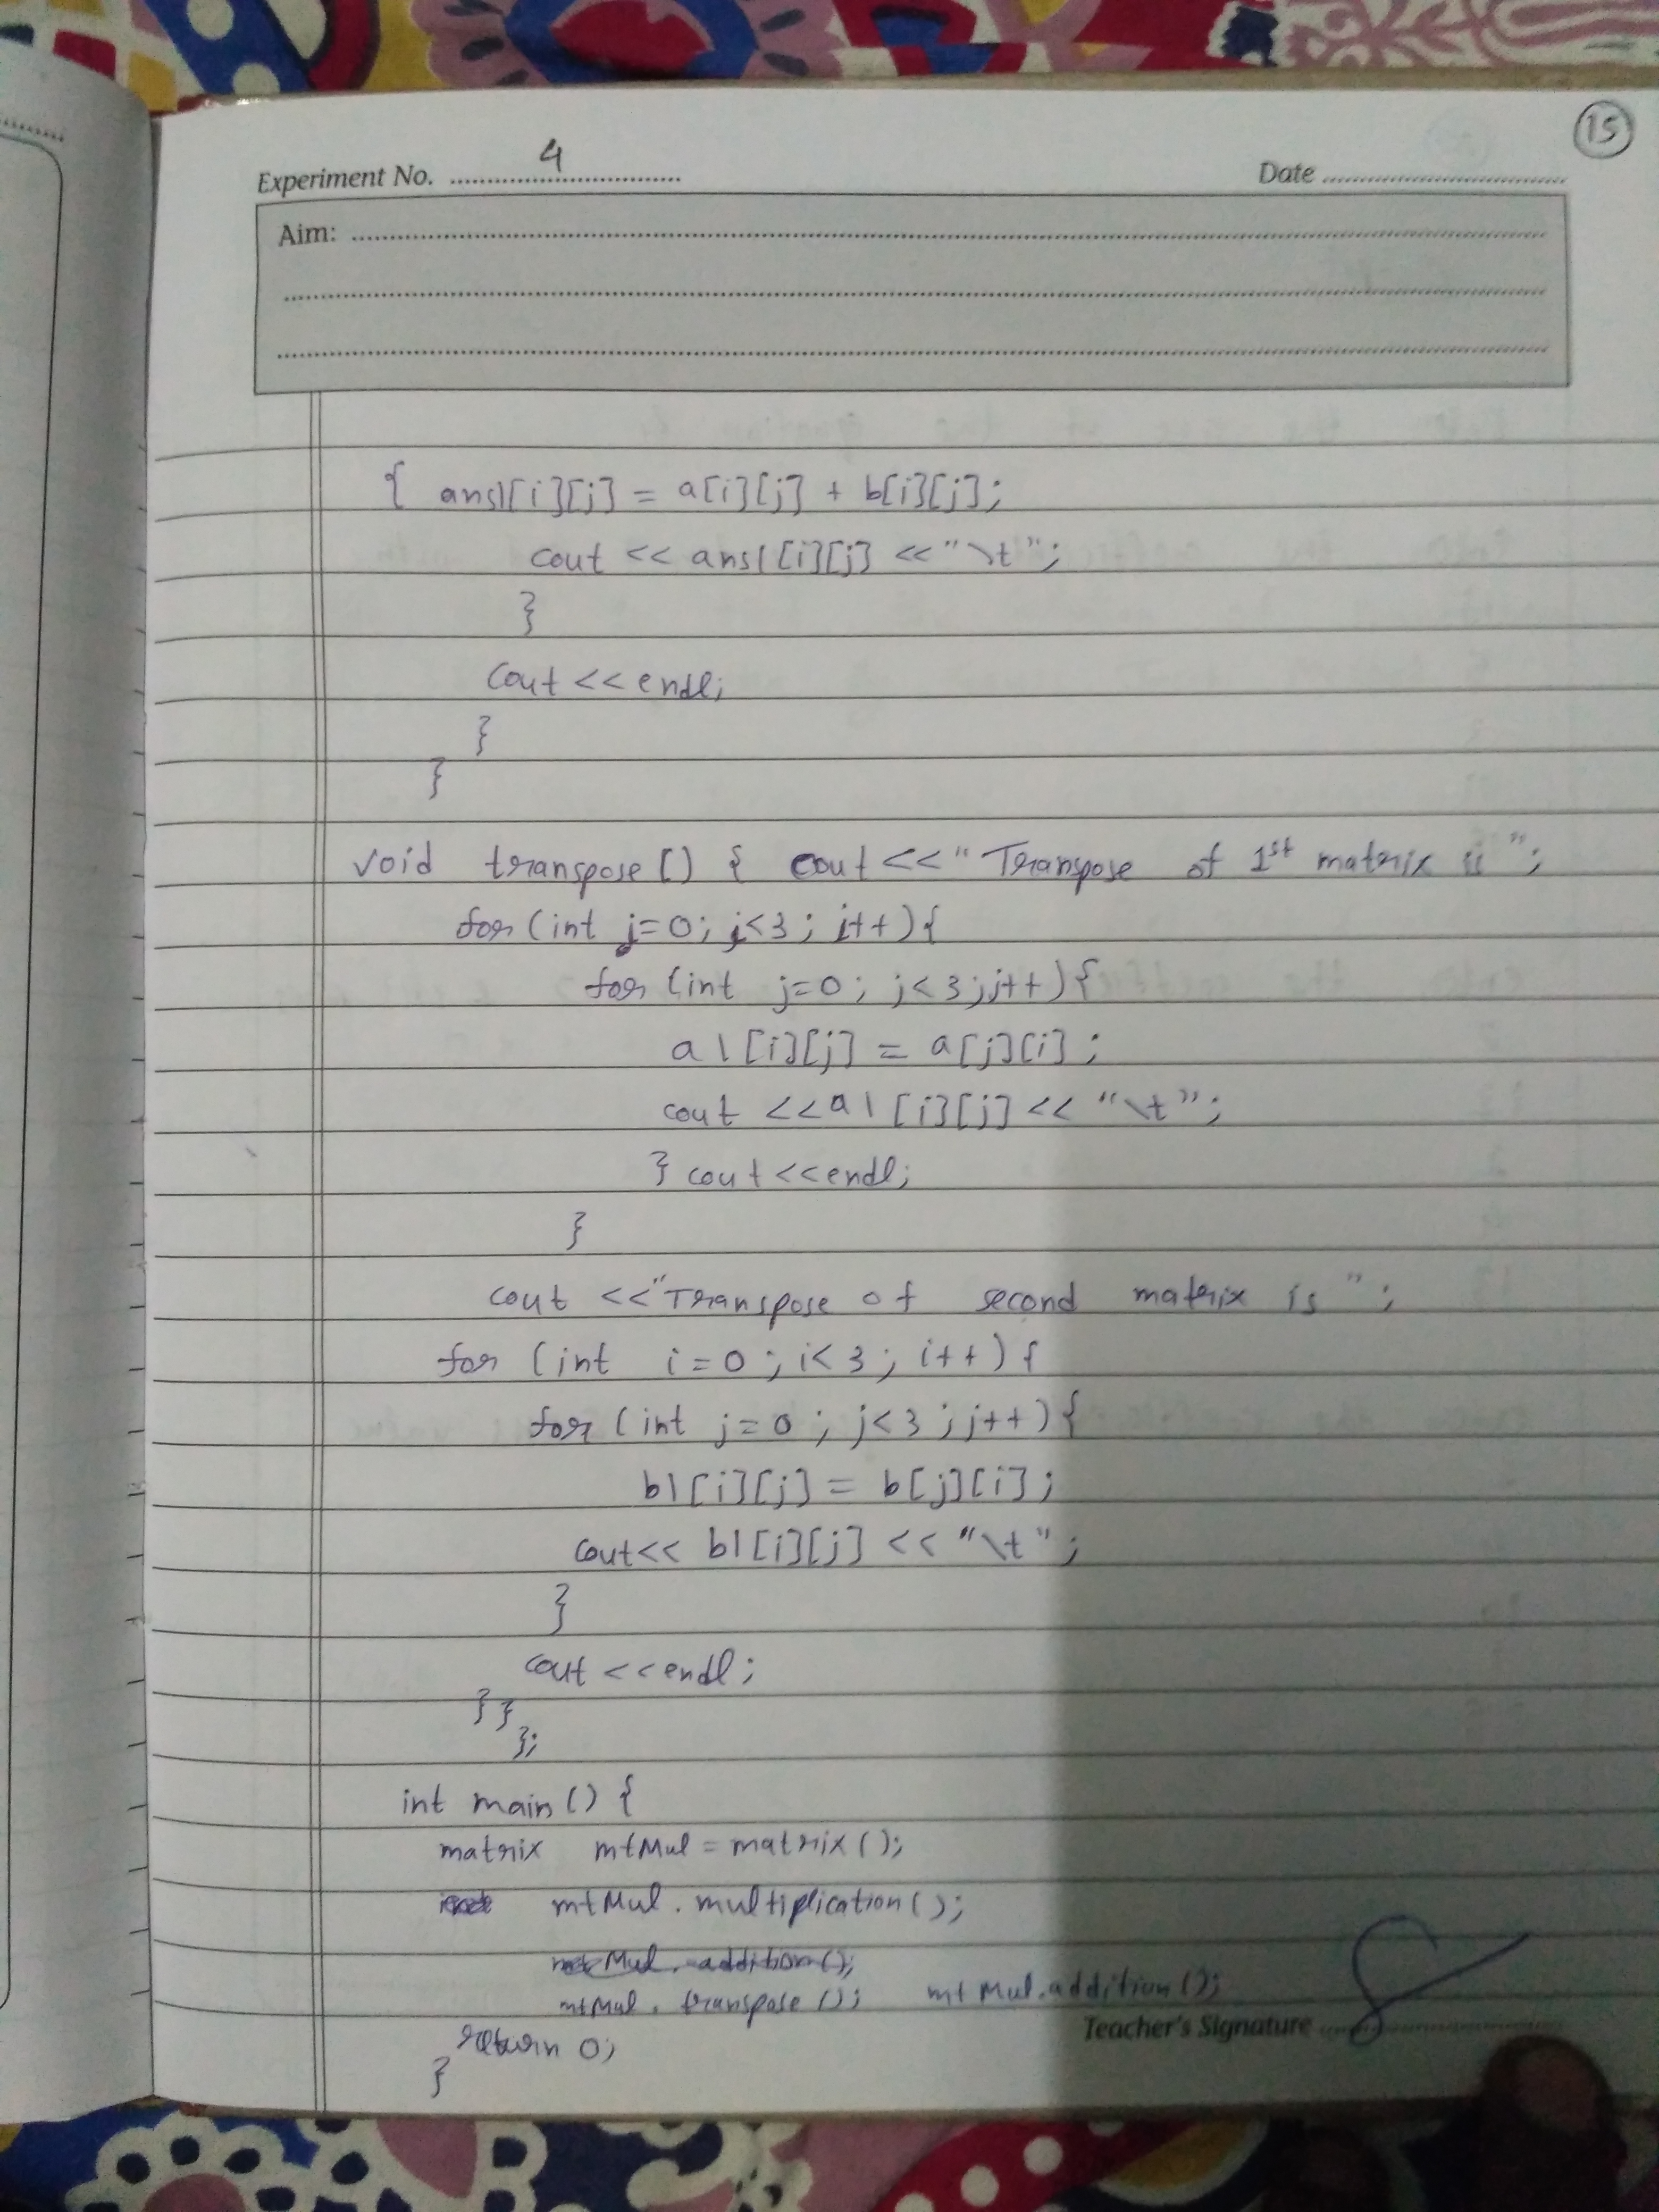 15
Experiment No. 4 Date
Aim:
{ ans1[i][j] = a[i][j] + b[i][j];
cout << ans1[i][j] << "\t";
}
cout << endl;
}
}
void transpose() { cout << "Transpose of 1st matrix is ";
for (int j=0; j<3; i++){
for (int j=0; j<3; j++){
a1[i][j] = a[j][i];
cout << a1[i][j] << "\t";
} cout << endl;
}
cout << "Transpose of second matrix is ";
for (int i=0; i<3; i++){
for (int j=0; j<3; j++){
b1[i][j] = b[j][i];
cout << b1[i][j] << "\t";
}
cout << endl;
}}
};
int main() {
matrix mtMul = matrix();
mtMul.multiplication();
mtMul.addition();
mtMul.transpose(); mtMul.addition();
Teacher's Signature
return 0;
}